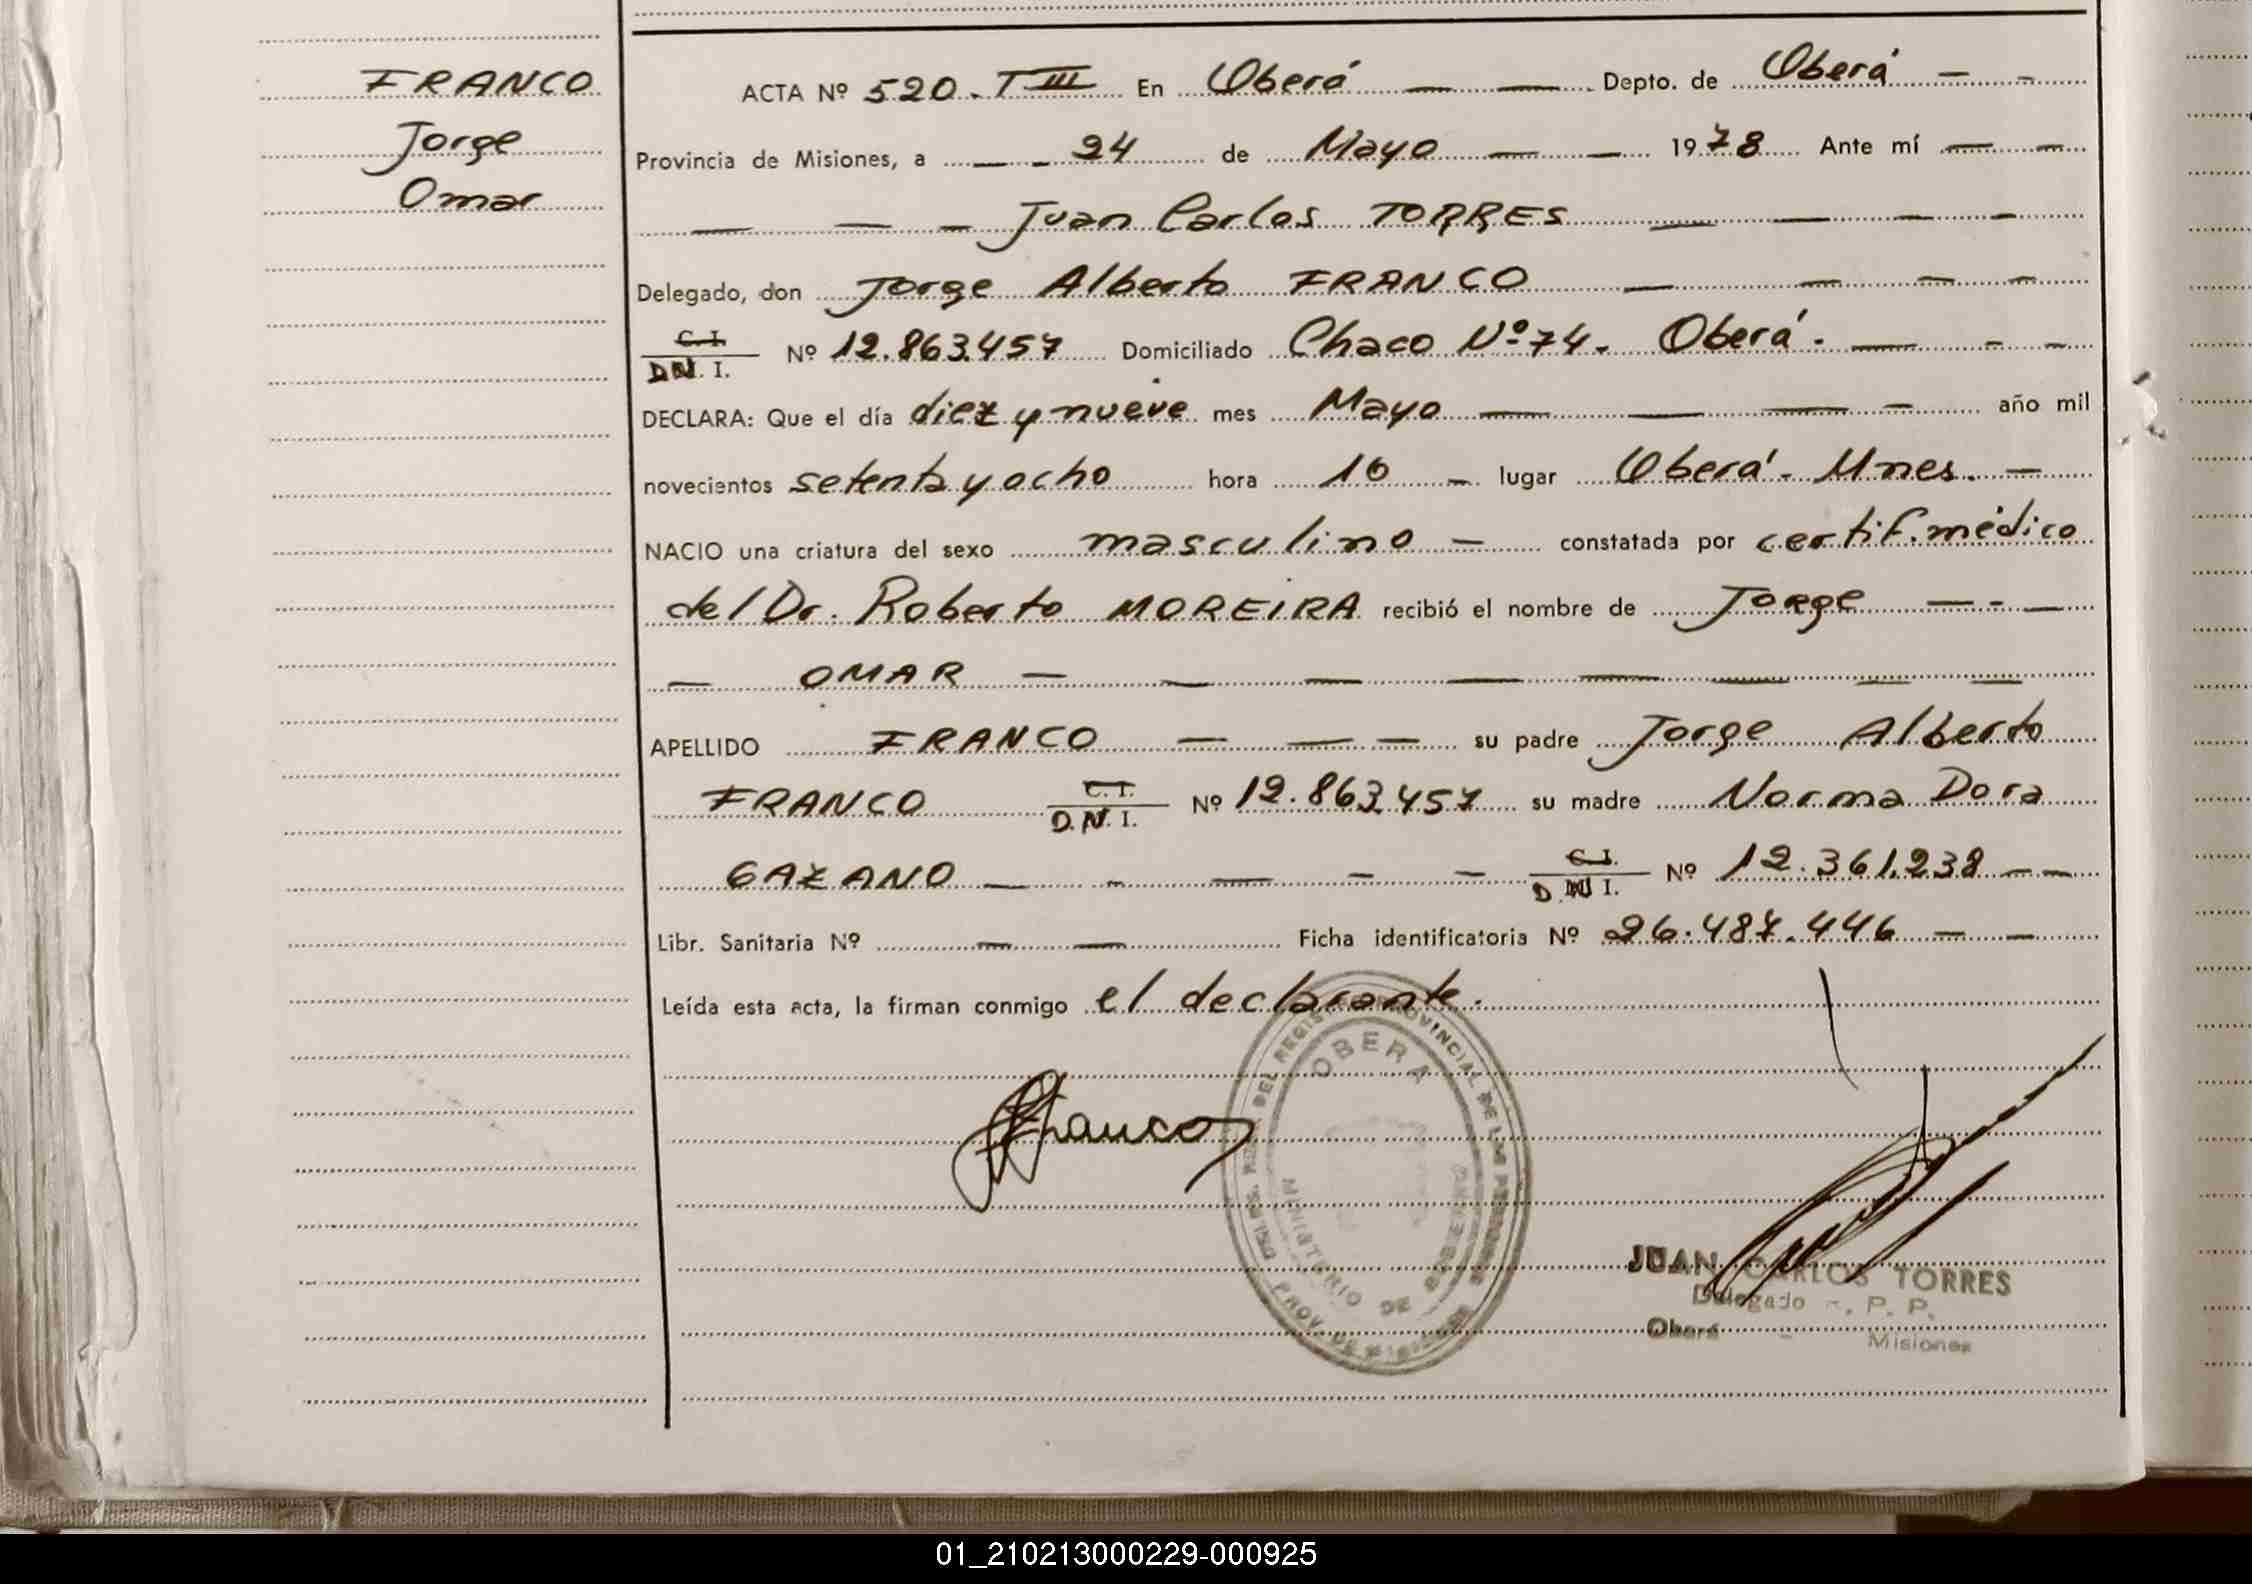 FRANCO
Jorge
Omar
ACTA Nº 520. T III En Oberá Depto. de Oberá
Provincia de Misiones, a 24 de Mayo 1978 Ante mí
Juan Carlos TORRES
Delegado, don Jorge Alberto FRANCO
C. I. D.N. I. Nº 12.863.457 Domiciliado Chaco Nº 74. Oberá.
DECLARA: Que el día diez y nueve mes Mayo año mil
novecientos setenta y ocho hora 10 lugar Oberá - Mnes.
NACIO una criatura del sexo masculino constatada por certif. médico
del Dr. Roberto MOREIRA recibió el nombre de Jorge
OMAR
APELLIDO FRANCO su padre Jorge Alberto
FRANCO C. I. D.N. I. Nº 12.863.457 su madre Norma Dora
GAZANO C. I. D.N I. Nº 12.361.238
Libr. Sanitaria Nº Ficha identificatoria Nº 26.487.446
Leída esta acta, la firman conmigo el declarante.
Franco
OBERA
DEL REGISTRO PROVINCIAL DE LAS PERSONAS
MINISTERIO DE GOBIERNO
PROV. DE MISIONES
JUAN CARLOS TORRES
Delegado P. P.
Oberá - Misiones
01_210213000229-000925